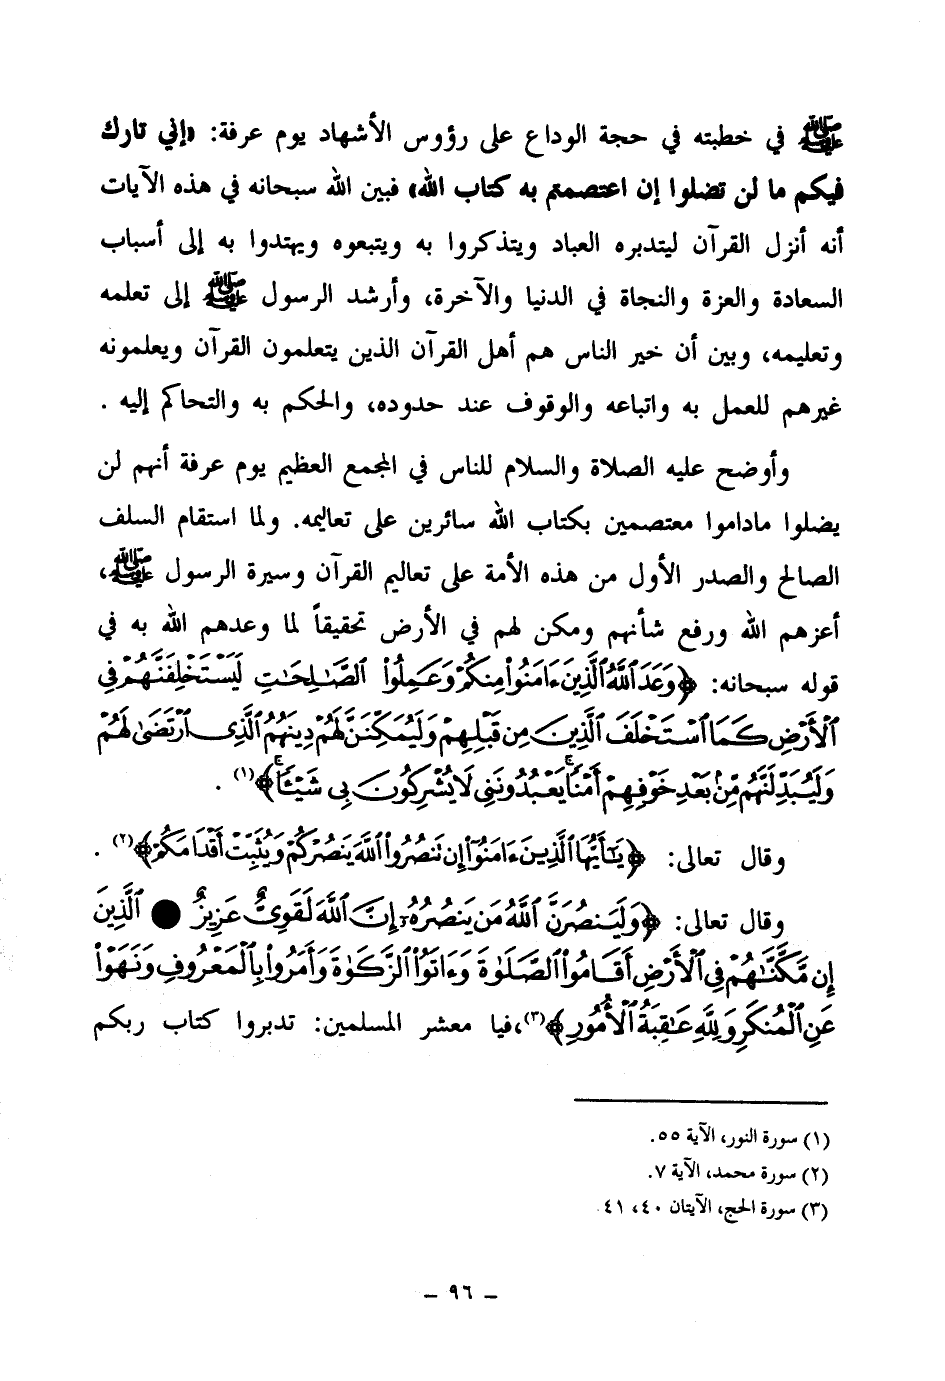 ﷺ في خطبته في حجة الوداع على رؤوس الأشهاد يوم عرفة: «إني تارك
فيكم ما لن تضلوا إن اعتصمتم به كتاب الله» فبين الله سبحانه في هذه الآيات
أنه أنزل القرآن ليتدبره العباد ويتذكروا به ويتبعوه ويهتدوا به إلى أسباب
السعادة والعزة والنجاة في الدنيا والآخرة، وأرشد الرسول ﷺ إلى تعلمه
وتعليمه، وبين أن خير الناس هم أهل القرآن الذين يتعلمون القرآن ويعلمونه
غيرهم للعمل به واتباعه والوقوف عند حدوده، والحكم به والتحاكم إليه .
وأوضح عليه الصلاة والسلام للناس في المجمع العظيم يوم عرفة أنهم لن
يضلوا ماداموا معتصمين بكتاب الله سائرين على تعاليمه. ولما استقام السلف
الصالح والصدر الأول من هذه الأمة على تعاليم القرآن وسيرة الرسول ﷺ،
أعزهم الله ورفع شأنهم ومكن لهم في الأرض تحقيقاً لما وعدهم الله به في
قوله سبحانه: ﴿وَعَدَ ٱللَّهُ ٱلَّذِينَ ءَامَنُوا۟ مِنكُمْ وَعَمِلُوا۟ ٱلصَّـٰلِحَـٰتِ لَيَسْتَخْلِفَنَّهُمْ فِى
ٱلْأَرْضِ كَمَا ٱسْتَخْلَفَ ٱلَّذِينَ مِن قَبْلِهِمْ وَلَيُمَكِّنَنَّ لَهُمْ دِينَهُمُ ٱلَّذِى ٱرْتَضَىٰ لَهُمْ
وَلَيُبَدِّلَنَّهُم مِّنۢ بَعْدِ خَوْفِهِمْ أَمْنًا ۚ يَعْبُدُونَنِى لَا يُشْرِكُونَ بِى شَيْـًٔا ۚ﴾(١) .
وقال تعالى: ﴿يَـٰٓأَيُّهَا ٱلَّذِينَ ءَامَنُوٓا۟ إِن تَنصُرُوا۟ ٱللَّهَ يَنصُرْكُمْ وَيُثَبِّتْ أَقْدَامَكُمْ﴾(٢) .
وقال تعالى: ﴿وَلَيَنصُرَنَّ ٱللَّهُ مَن يَنصُرُهُۥٓ إِنَّ ٱللَّهَ لَقَوِىٌّ عَزِيزٌ ● ٱلَّذِينَ
إِن مَّكَّنَّـٰهُمْ فِى ٱلْأَرْضِ أَقَامُوا۟ ٱلصَّلَوٰةَ وَءَاتَوُا۟ ٱلزَّكَوٰةَ وَأَمَرُوا۟ بِٱلْمَعْرُوفِ وَنَهَوْا۟
عَنِ ٱلْمُنكَرِ وَلِلَّهِ عَـٰقِبَةُ ٱلْأُمُورِ﴾(٣)، فيا معشر المسلمين: تدبروا كتاب ربكم
(١) سورة النور، الآية ٥٥.
(٢) سورة محمد، الآية ٧.
(٣) سورة الحج، الآيتان ٤٠، ٤١.
– ٩٦ –